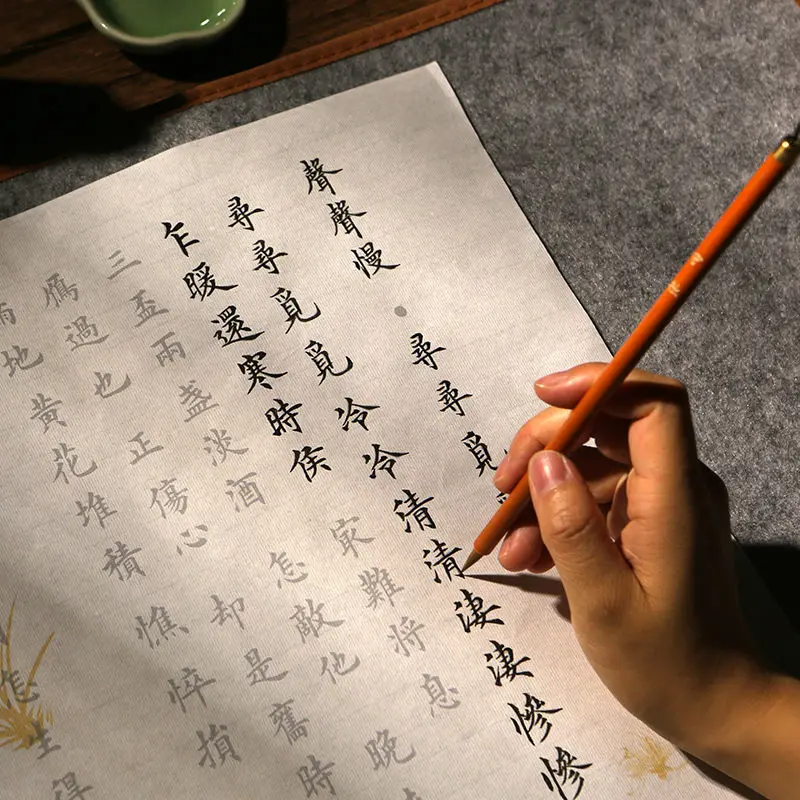 聲聲慢・尋尋覓
尋尋覓覓冷冷清清淒淒慘慘
乍暖還寒時侯 難將息
三盃兩盞淡酒 怎敵他 晚
鴈過也 正傷心 却是舊時
地黃花堆積 憔悴損
怎生得